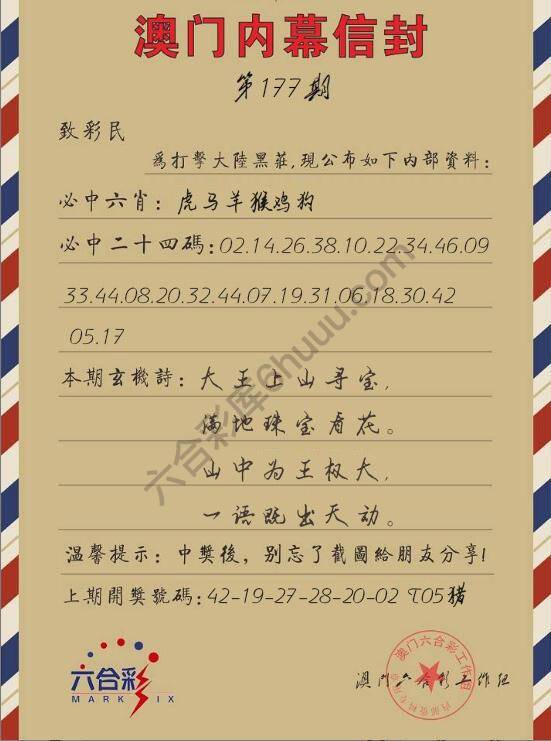 澳门内幕信封
第177期
致彩民
為打擊大陸黑莊,現公布如下内部資料:
必中六肖:虎马羊猴鸡狗
必中二十四碼:02.14.26.38.10.22.34.46.09
33.44.08.20.32.44.07.19.31.06.18.30.42
05.17
本期玄機詩:大王上山寻宝,
满地珠宝看花。
山中为王权大,
一语既出天动。
温馨提示:中獎後,别忘了截圖給朋友分享!
上期開獎號碼:42-19-27-28-20-02 T05猪
六合彩
MARK SIX
澳门六合彩工作组
澳门六合彩工作组
六合彩库6huuu.com